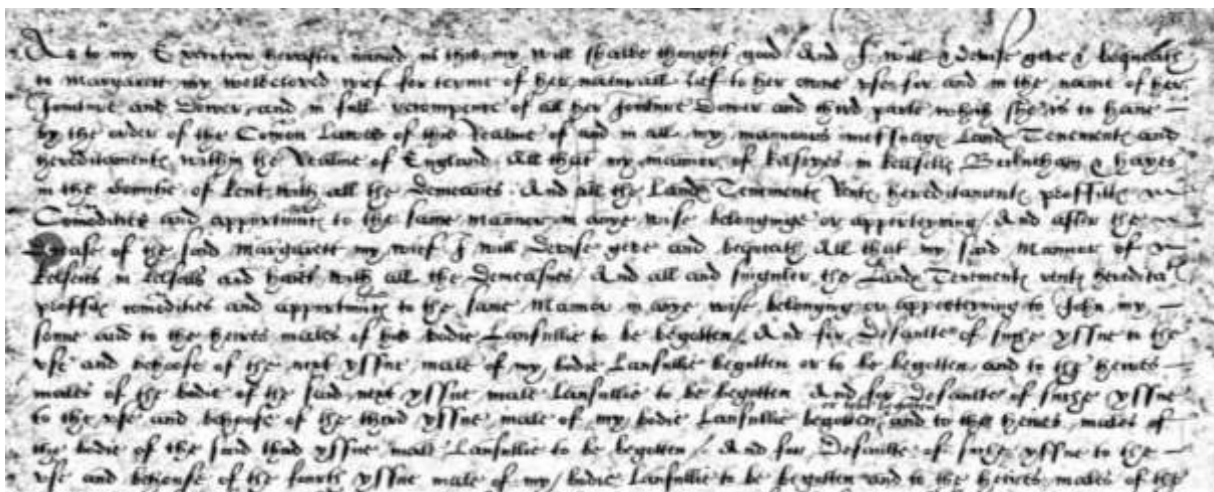 As to my Executors hereafter named in this my will shalbe thought good And I will & devise geve & bequeath
to Margarett my welbeloved wief for terme of her naturall lief to her owne use for and in the name of her
Jointure and Dower, and in full recompence of all her Jointure Dower and third parte which she is to have
by the order of the Comon Lawes of this Realme of and in all my mannours Landes Tenementes and
hereditamentes within the Realme of England. All that my mannor of in & Hayes
in the Countie of Kent with all the Demeanes. And all the Landes Tenementes Rentes hereditamentes proffittes
Comodities and to the same Mannor in anye wise belonginge or apperteyning. And after the
Decease of the said Margarett my wief I will Devise geve and bequeath All that my said Mannor of
in and with all the Demeasnes And all and singuler the Landes Tenementes rentes
comodities and to the same Mannor in anye wise belonging or apperteyning to John my
sonne and to the heires males of his bodie Lawfullie to be begotten. And for Defaulte of suche yssue to the
use and behoofe of the next yssue male of my bodie Lawfullie begotten or to be begotten and to the heires
males of the bodie of the said next yssue male Lawfullie to be begotten And for Defaulte of suche yssue
to the use and behoofe of the third yssue male of my bodie Lawfullie begotten and to the heires males of
the bodie of the said third yssue male Lawfullie to be begotten. And for Defaulte of suche yssue to the
use and behoofe of the fourth yssue male of my bodie Lawfullie to be begotten and to the heires males of the